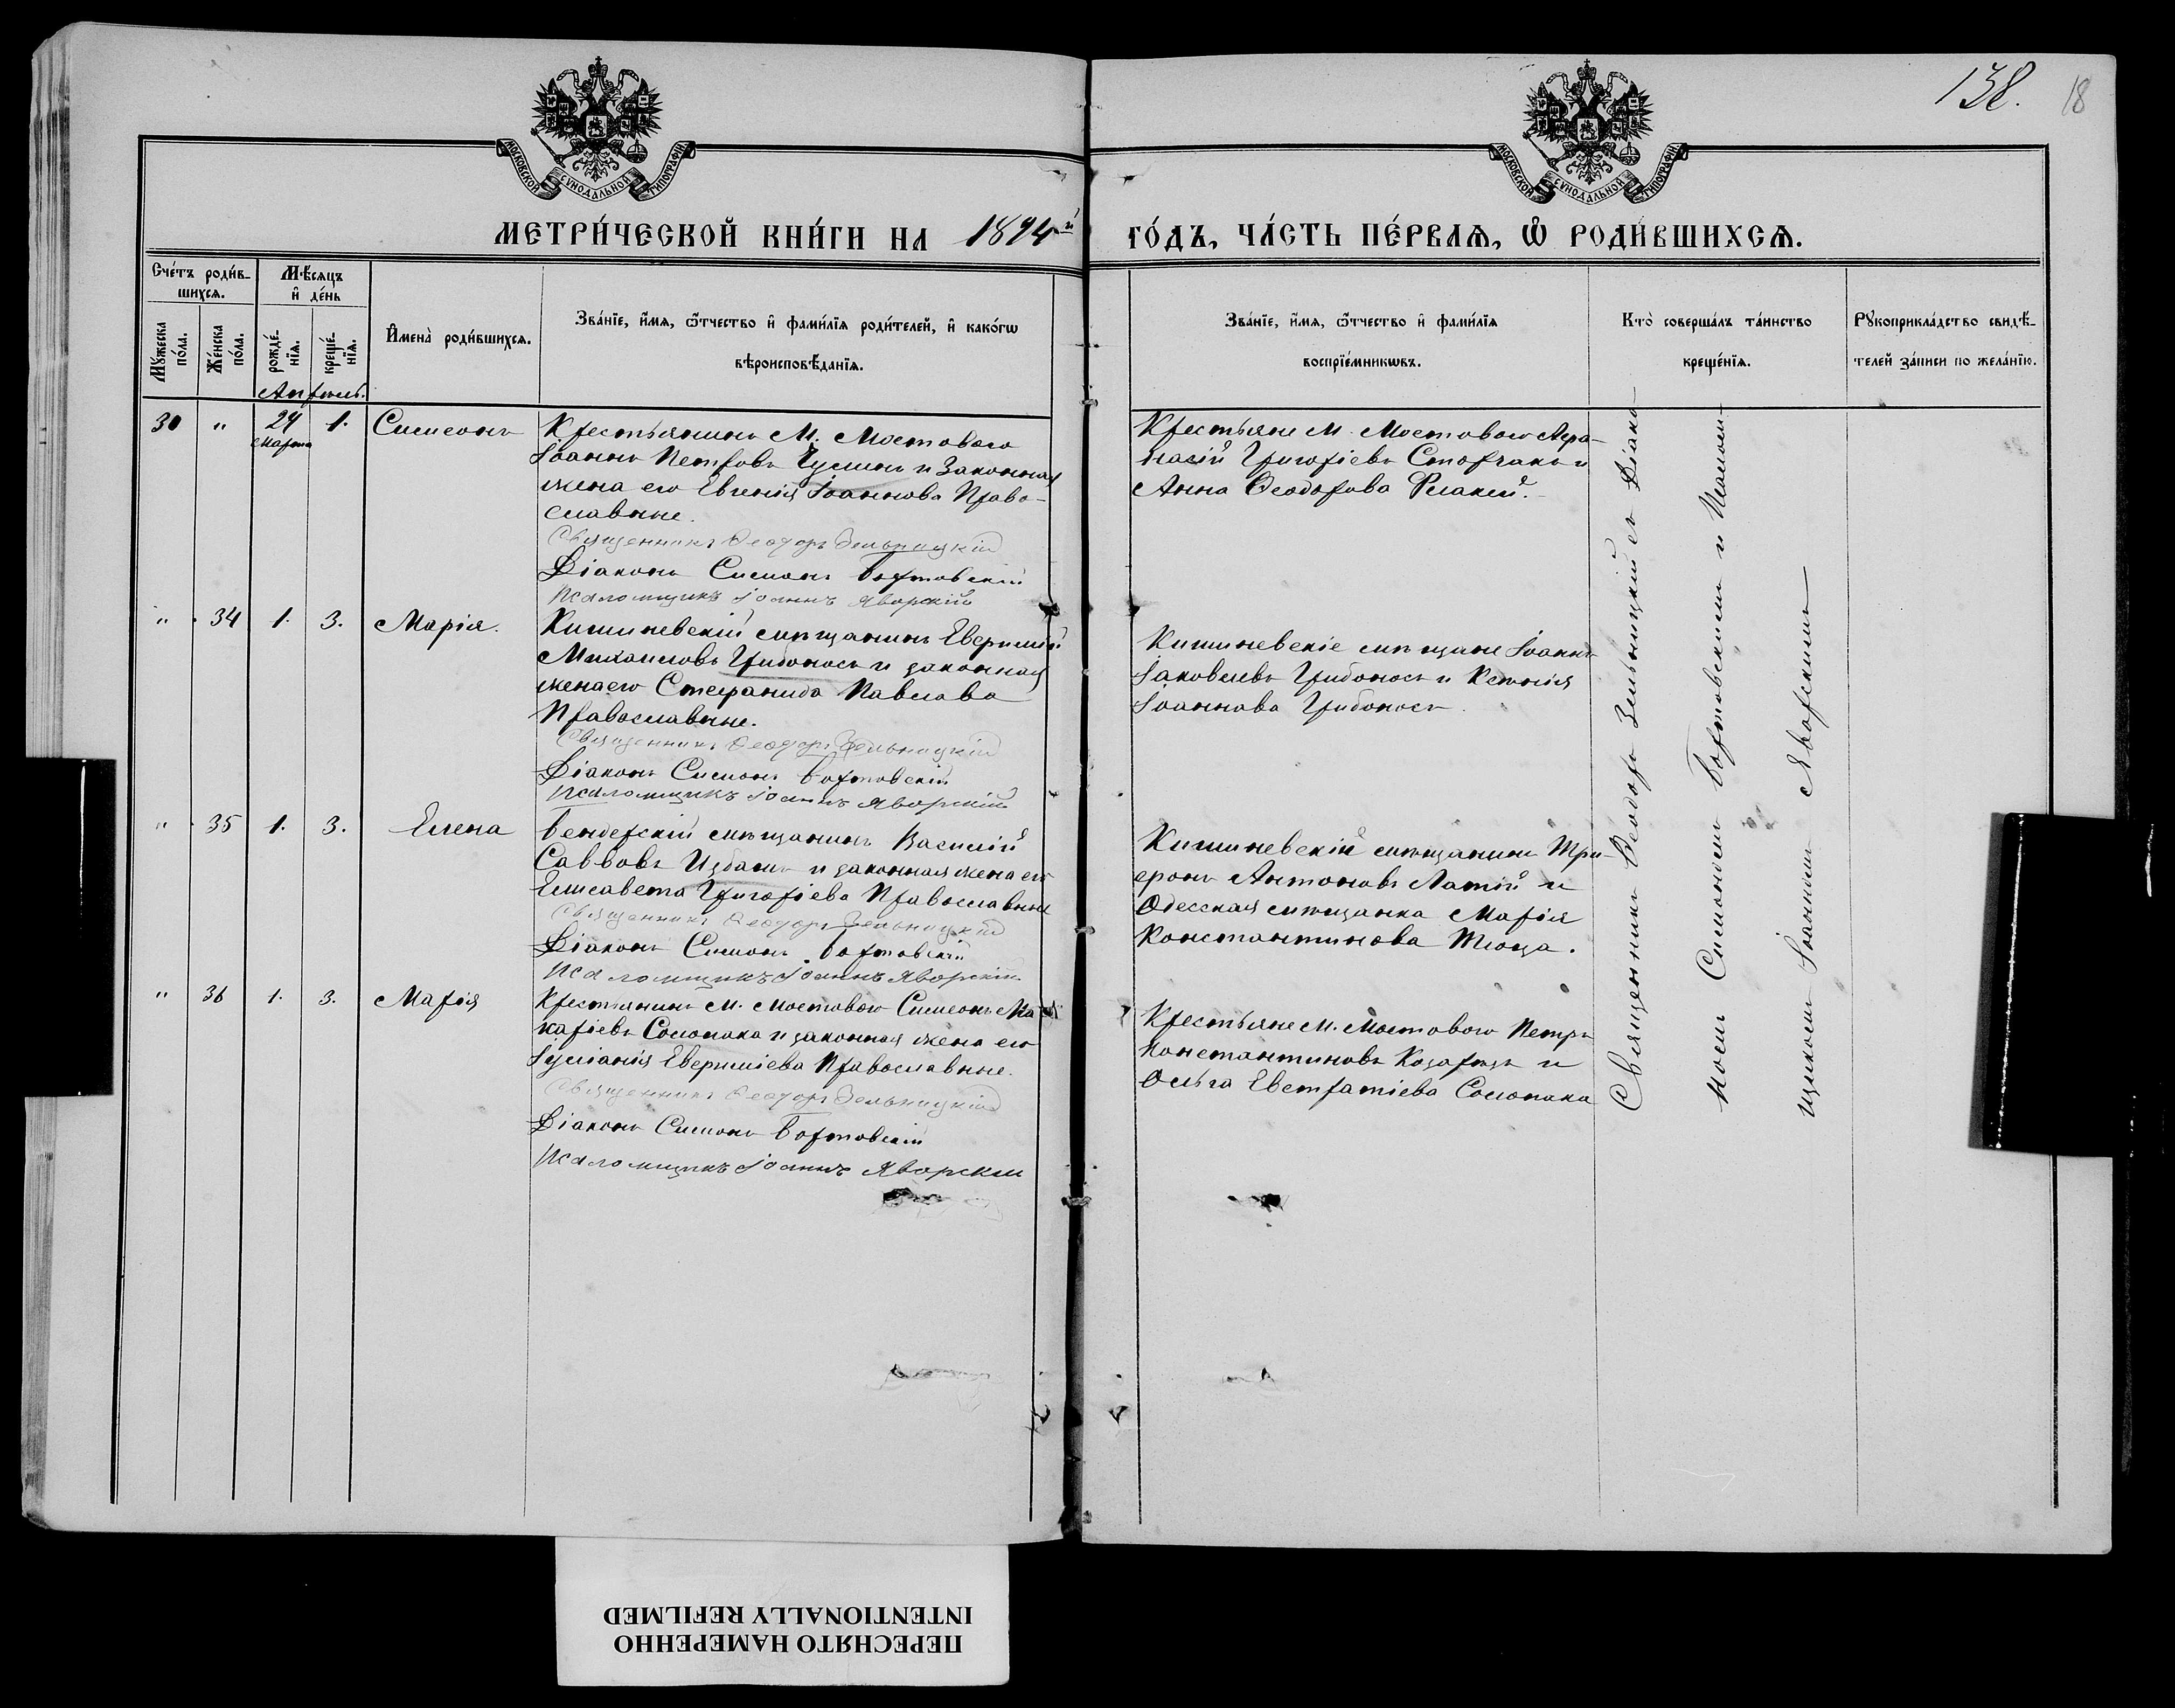 138. 18
МОСКОВСКОЙ СУНОДАЛЬНОЙ ТИПОГРАФІИ
МОСКОВСКОЙ СУНОДАЛЬНОЙ ТИПОГРАФІИ
МЕТРИ́ЧЕСКОЙ КНИ́ГИ НА 1894й ГО́ДЪ, ЧА́СТЬ ПЕ́РВАѦ, Ѡ РОДИ́ВШИХСѦ.
Сче́тъ роди́в-
шихсѧ.
Мꙋ́жеска по́ла.
Же́нска по́ла.
Мѣ́сяцъ
и҆ де́нь
рожде́-
нїѧ.
креще́-
нїѧ.
И҆мена̀ роди́вшихсѧ.
Зва́нїе, и҆́мѧ, ѻ҆́тчество и҆ фами́лїѧ роди́телей, и҆ како́гѡ
вѣроисповѣ́данїѧ.
Зва́нїе, и҆́мѧ, ѻ҆́тчество и҆ фами́лїѧ
воспрїе́мникѡвъ.
Кто̀ соверша́лъ та́инство
креще́нїѧ.
Рꙋкоприкла́дство свидѣ́-
телей за́писи по жела́нїю.
Апрель.
30 " 24 Марта 1. Симеонъ
Крестьянинъ М. Мостового
Іоаннъ Петровъ и Законная
жена его Евгенія Іоаннова Право-
славные.
Священникъ Ѳеодоръ Зельницкій
Діаконъ Симонъ Бортовскій
Псаломщикъ Іоаннъ Яворскій
Крестьяне М. Мостового Афа-
насій Григоріевъ Столчакъ и
Анна Ѳеодорова
" 34 1. 3. Марія.
Кишиневскій мѣщанинъ Евфимій
Михаиловъ Грибоносъ и законная
жена его Стефанида Павлова
Православные.
Священникъ Ѳеодоръ Зельницкій
Діаконъ Симонъ Бортовскій
Псаломщикъ Іоаннъ Яворскій
Кишиневскіе мѣщане Іоаннъ
Іаковлевъ Грибоносъ и Ксенія
Іоаннова Грибоносъ.
" 35 1. 3. Елена
Бендерскій мѣщанинъ Василій
Саввовъ Избашъ и законная жена его
Елисавета Григоріева Православные
Священникъ Ѳеодоръ Зельницкій
Діаконъ Симонъ Бортовскій
Псаломщикъ Іоаннъ Яворскій
Кишиневскій мѣщанинъ Три-
фонъ Антоновъ Латій и
Одесская мѣщанка Марія
Константинова
" 36 1. 3. Марія
Крестьянинъ М. Мостового Симеонъ Ма-
каріевъ Солопака и законная жена его
Іуліанія Евфиміева Православные.
Священникъ Ѳеодоръ Зельницкій
Діаконъ Симонъ Бортовскій
Псаломщикъ Іоаннъ Яворскій
Крестьяне М. Мостового Петръ
Константиновъ и
Ольга Евстратіева Солопака
Священникъ Ѳеодоръ Зельницкій съ Діако-
номъ Симономъ Бортовскимъ и Псалом-
щикомъ Іоанномъ Яворскимъ
ПЕРЕСНЯТО НАМЕРЕННО
INTENTIONALLY REFILMED